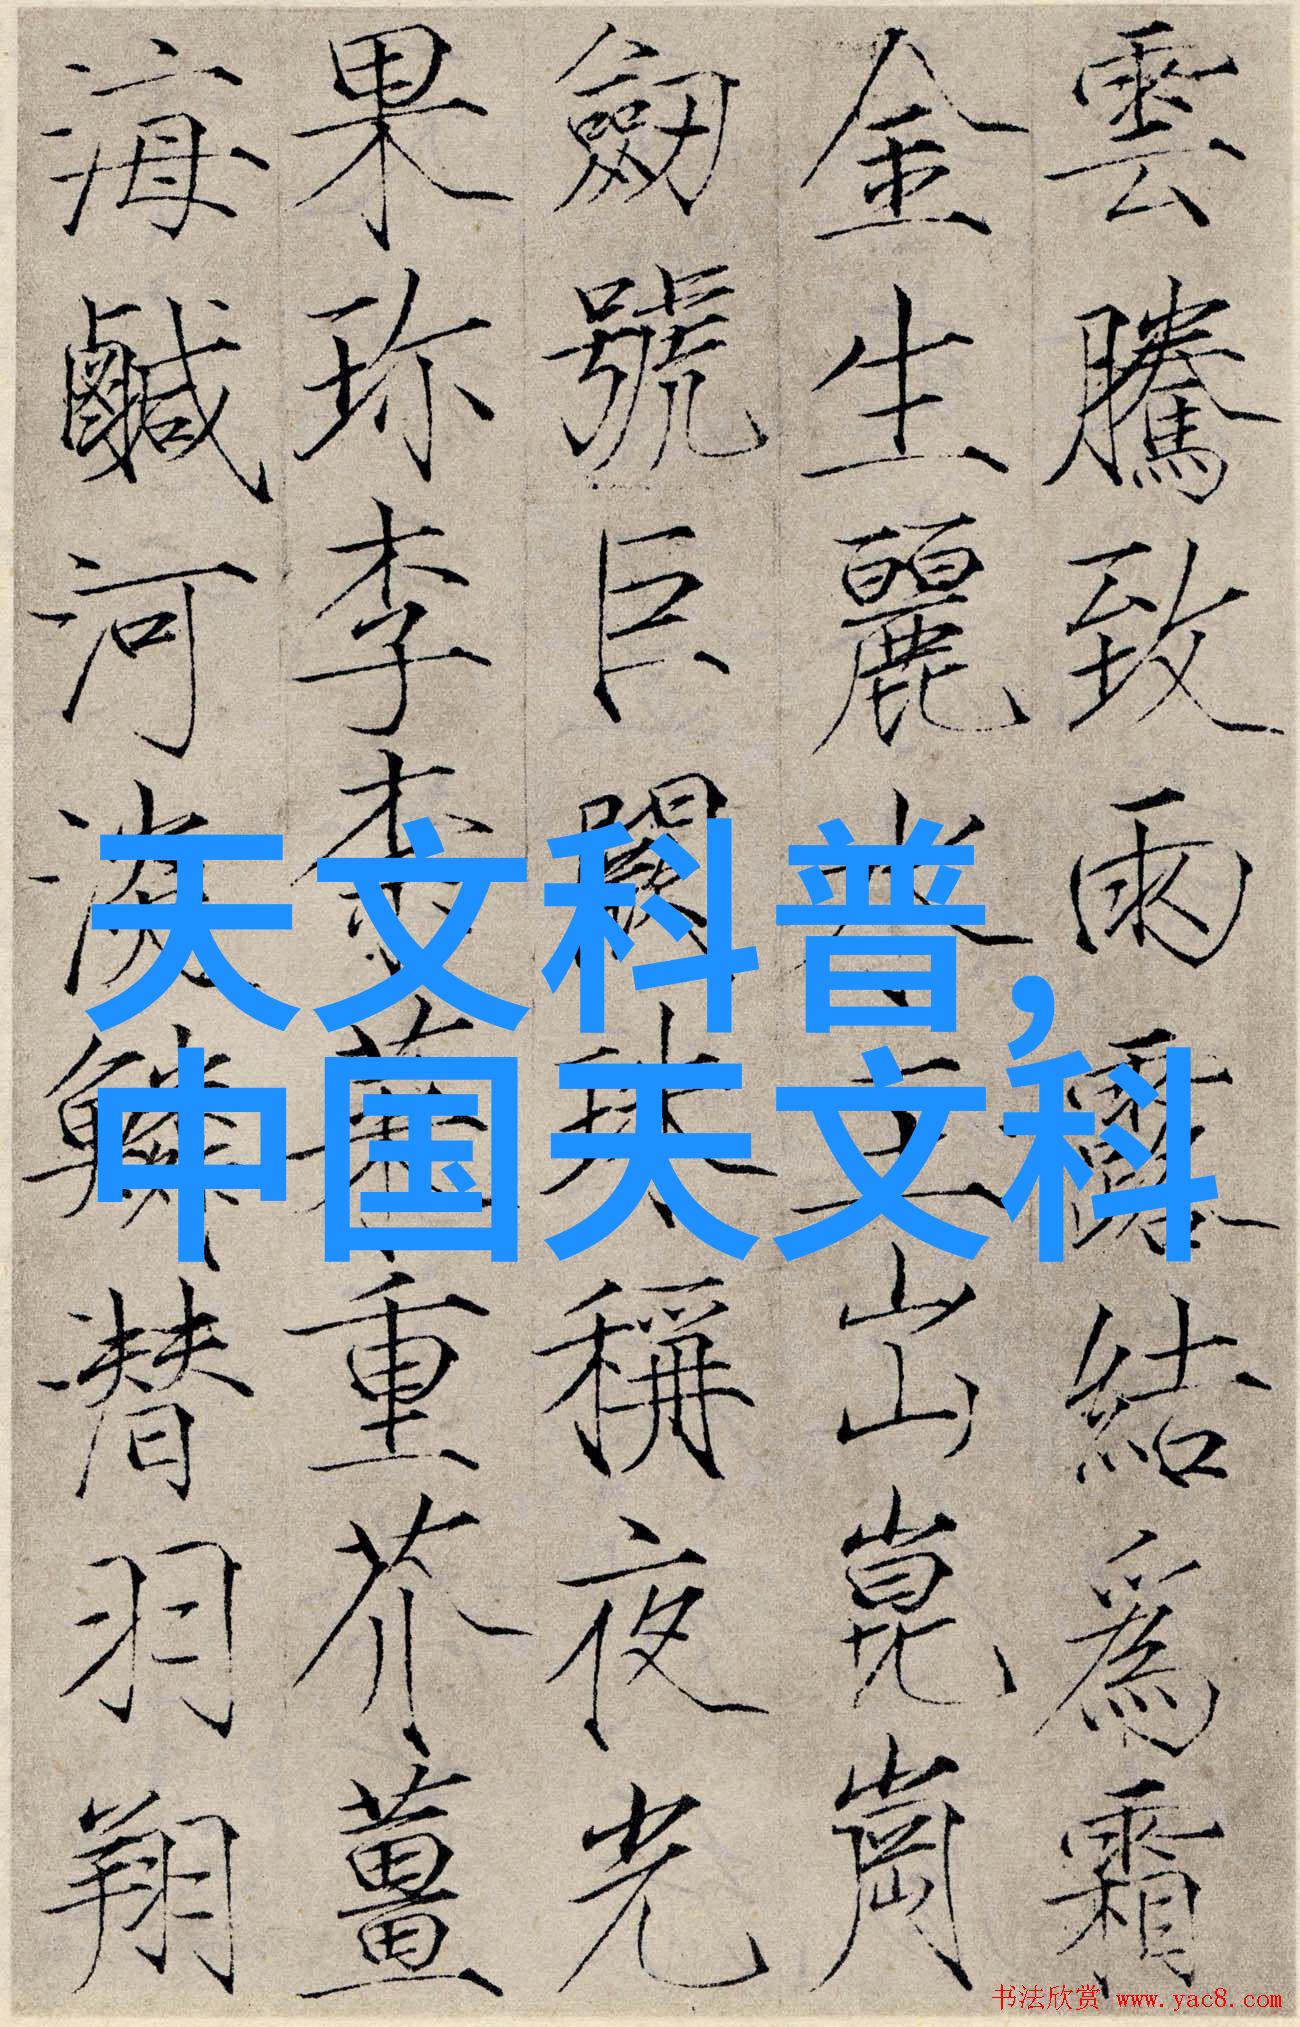 雲騰致雨露結爲霜
金生麗水玉出崑崗
劒號巨闕珠稱夜光
果珎李柰菜重芥薑
海鹹河淡鱗潜羽翔
天文科普,
中国天文科
书法欣赏 www.yac8.com